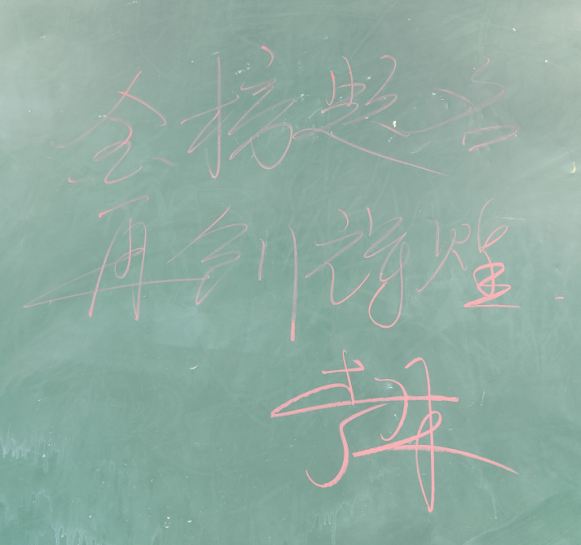 金榜题名
再创辉煌